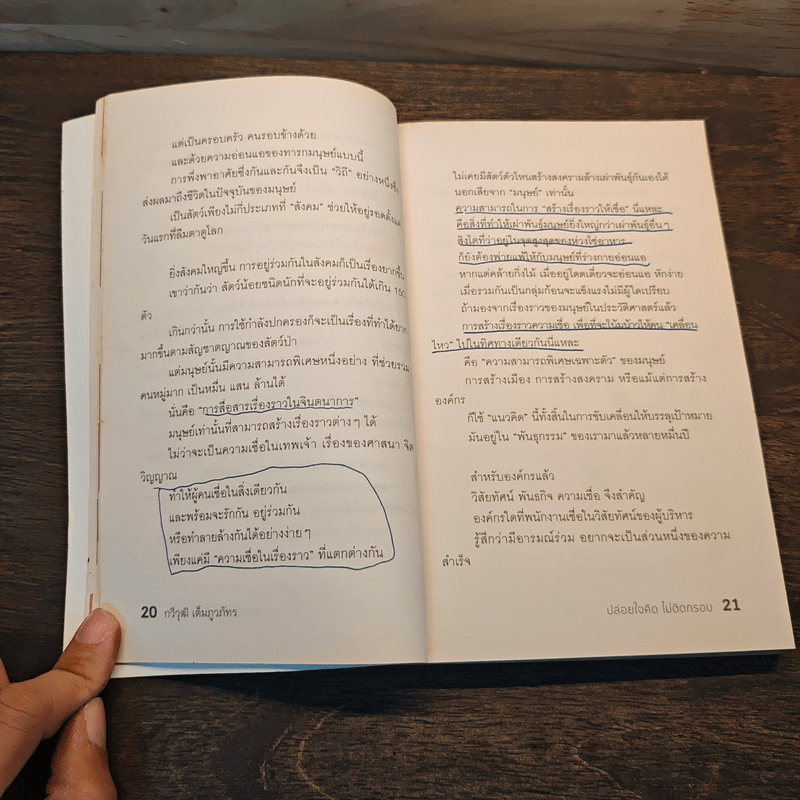 แต่เป็นครอบครัว คนรอบข้างด้วย
และด้วยความอ่อนแอของทารกมนุษย์แบบนี้
การพึ่งพาอาศัยซึ่งกันและกันจึงเป็น “วิถี” อย่างหนึ่งซึ่ง
ส่งผลมาถึงชีวิตในปัจจุบันของมนุษย์
เป็นสัตว์เพียงไม่กี่ประเภทที่ “สังคม” ช่วยให้อยู่รอดตั้งแต่
วันแรกที่ลืมตาดูโลก
ยิ่งสังคมใหญ่ขึ้น การอยู่ร่วมกันในสังคมก็เป็นเรื่องยากขึ้น
เขาว่ากันว่า สัตว์น้อยชนิดนักที่จะอยู่ร่วมกันได้เกิน 150
ตัว
เกินกว่านั้น การใช้กำลังปกครองก็จะเป็นเรื่องที่ทำได้ยาก
มากขึ้นตามสัญชาตญาณของสัตว์ป่า
แต่มนุษย์นั้นมีความสามารถพิเศษหนึ่งอย่าง ที่ช่วยรวม
คนหมู่มาก เป็นหมื่น แสน ล้านได้
นั่นคือ “การสื่อสารเรื่องราวในจินตนาการ”
มนุษย์เท่านั้นที่สามารถสร้างเรื่องราวต่างๆ ได้
ไม่ว่าจะเป็นความเชื่อในเทพเจ้า เรื่องของศาสนา จิต
วิญญาณ
ทำให้ผู้คนเชื่อในสิ่งเดียวกัน
และพร้อมจะรักกัน อยู่ร่วมกัน
หรือทำลายล้างกันได้อย่างง่ายๆ
เพียงแค่มี “ความเชื่อในเรื่องราว” ที่แตกต่างกัน
20 กวีวุฒิ เต็มภูวภัทร
ไม่เคยมีสัตว์ตัวไหนสร้างสงครามล้างเผ่าพันธุ์กันเองได้
นอกเสียจาก “มนุษย์” เท่านั้น
ความสามารถในการ “สร้างเรื่องราวให้เชื่อ” นี่แหละ
คือสิ่งที่ทำให้เผ่าพันธุ์มนุษย์ยิ่งใหญ่กว่าเผ่าพันธุ์อื่นๆ
สิงโตที่ว่าอยู่ในจุดสูงสุดของห่วงโซ่อาหาร
ก็ยังต้องพ่ายแพ้ให้กับมนุษย์ที่ร่างกายอ่อนแอ
หากแต่คล้ายกิ่งไม้ เมื่ออยู่โดดเดี่ยวจะอ่อนแอ หักง่าย
เมื่อรวมกันเป็นกลุ่มก้อนจะแข็งแรงไม่มีผู้ใดเปรียบ
ถ้ามองจากเรื่องราวของมนุษย์ในประวัติศาสตร์แล้ว
การสร้างเรื่องราวความเชื่อ เพื่อที่จะโน้มน้าวให้คน “เคลื่อน
ไหว” ไปในทิศทางเดียวกันนี่แหละ
คือ “ความสามารถพิเศษเฉพาะตัว” ของมนุษย์
การสร้างเมือง การสร้างสงคราม หรือแม้แต่การสร้าง
องค์กร
ก็ใช้ “แนวคิด” นี้ทั้งสิ้นในการขับเคลื่อนให้บรรลุเป้าหมาย
มันอยู่ใน “พันธุกรรม” ของเรามาแล้วหลายหมื่นปี
สำหรับองค์กรแล้ว
วิสัยทัศน์ พันธกิจ ความเชื่อ จึงสำคัญ
องค์กรใดที่พนักงานเชื่อในวิสัยทัศน์ของผู้บริหาร
รู้สึกว่ามีอารมณ์ร่วม อยากจะเป็นส่วนหนึ่งของความ
สำเร็จ
ปล่อยใจคิด ไม่ติดกรอบ 21